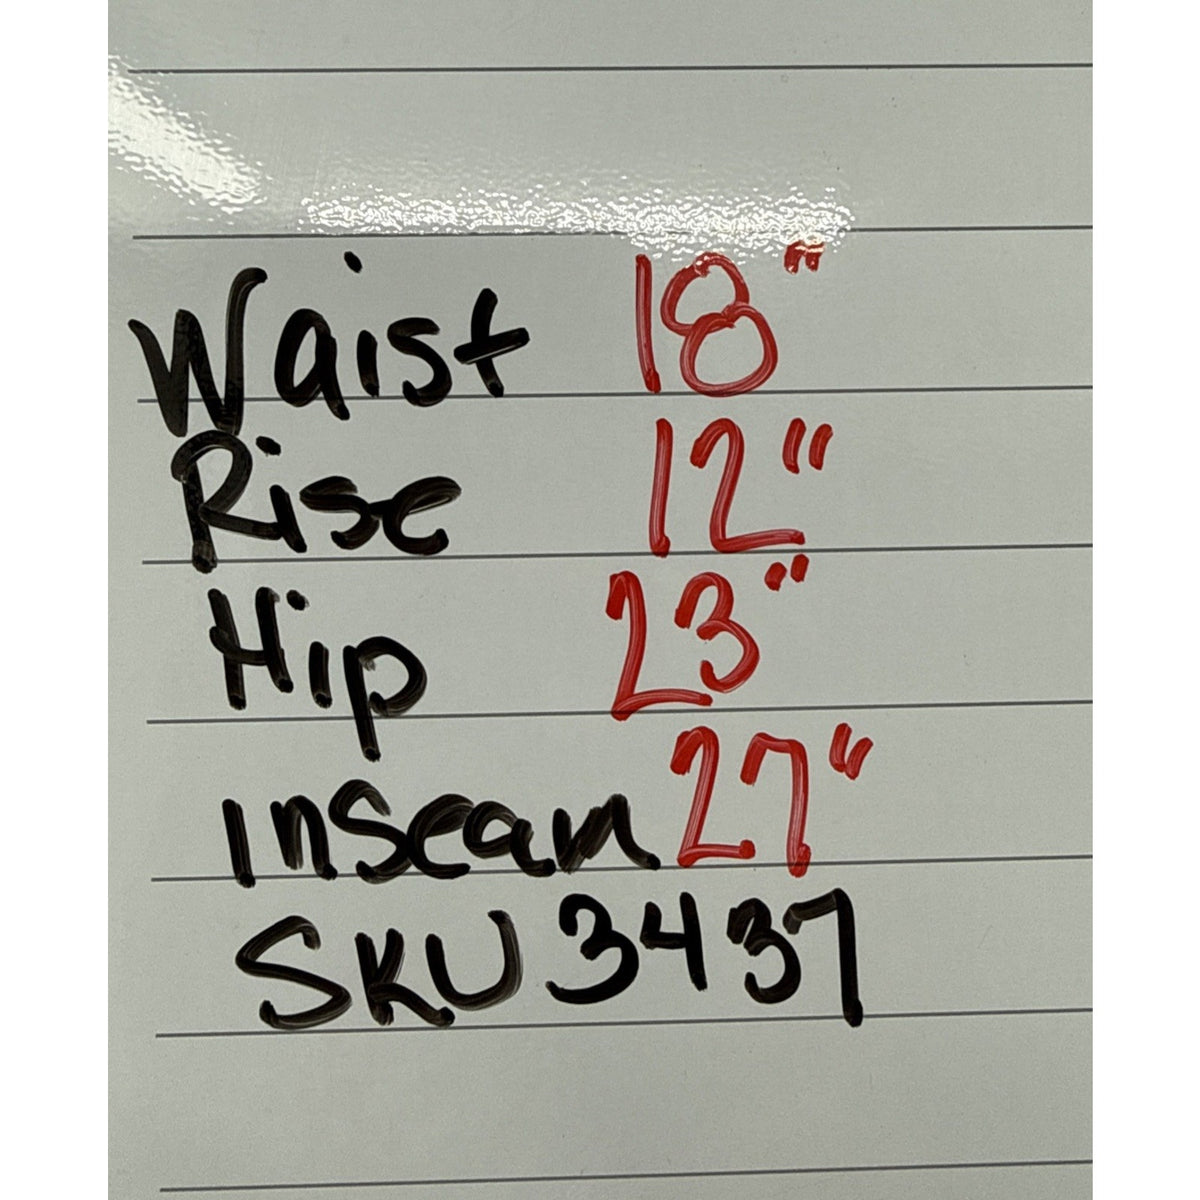 Waist 18"
Rise 12"
Hip 23"
Inseam 27"
SKU 3437